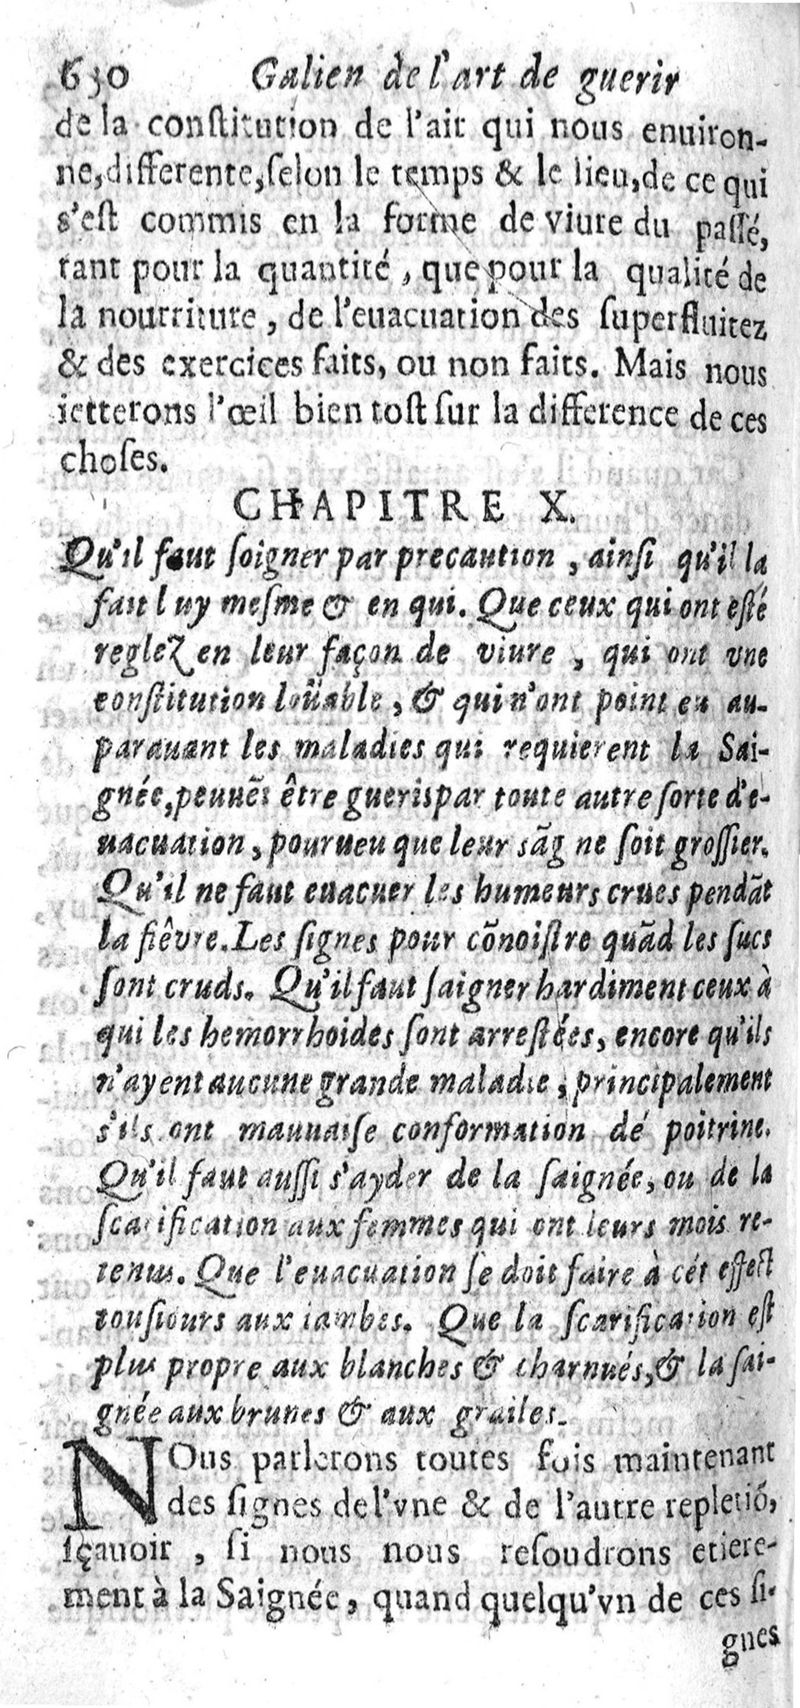 630 Galien de l'art de guerir
de la constitution de l'air qui nous enuiron-
ne, differente, ſelon le temps & le lieu, de ce qui
s'eſt commis en la forme de viure du paſſé,
tant pour la quantité, que pour la qualité de
la nourriture, de l'euacuation des ſuperfluitez
& des exercices faits, ou non faits. Mais nous
ietterons l'œil bien toſt ſur la difference de ces
choſes.
CHAPITRE X.
Qu'il faut ſoigner par precaution, ainſi qu'il la
fait luy meſme & en qui. Que ceux qui ont eſté
reglez en leur façon de viure, qui ont vne
conſtitution loüable, & qui n'ont point eu au-
parauant les maladies qui requierent la Sai-
gnée, peuuẽt être gueris par toute autre ſorte d'e-
uacuation, pourueu que leur sãg ne ſoit groſſier.
Qu'il ne faut euacuer les humeurs crues pendãt
la fiêvre. Les ſignes pour cõnoiſtre quãd les ſucs
ſont cruds. Qu'il faut ſaigner hardiment ceux à
qui les hemorrhoides ſont arreſtées, encore qu'ils
n'ayent aucune grande maladie, principalement
s'ils ont mauuaiſe conformation de poitrine.
Qu'il faut auſſi s'ayder de la ſaignée, ou de la
ſcarification aux femmes qui ont leurs mois re-
tenus. Que l'euacuation ſe doit faire à cét effect
touſiours aux iambes. Que la ſcarification eſt
plus propre aux blanches & charnués, & la ſai-
gnée aux brunes & aux grailes.
NOus parlerons toutes fois maintenant
des ſignes de l'vne & de l'autre repletiõ,
ſçauoir, ſi nous nous reſoudrons etiere-
ment à la Saignée, quand quelqu'vn de ces ſi-
gnes